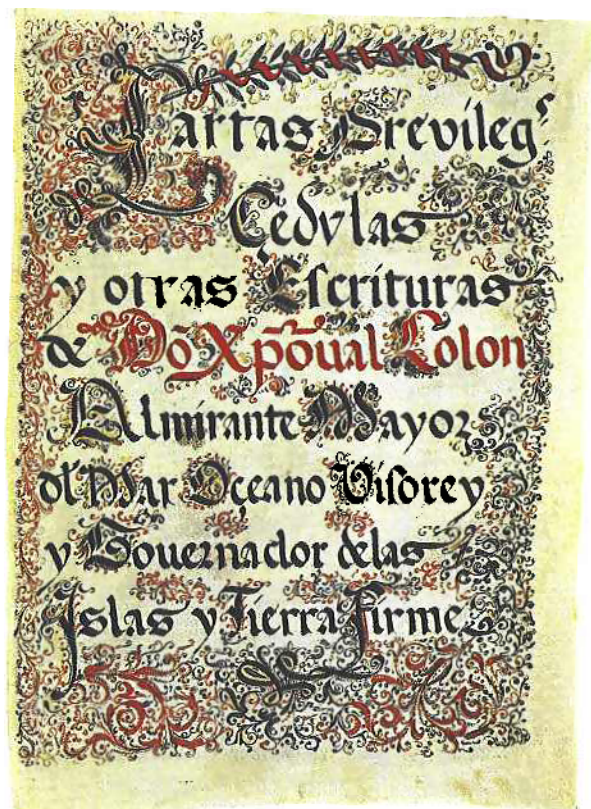 Cartas Previlegs
Cedulas
y otras Escrituras
de Dō Xp̄oual Colon
Almirante Mayor
dl Mar Oçeano Visorey
y Gouernador delas
Islas y Tierra Firme